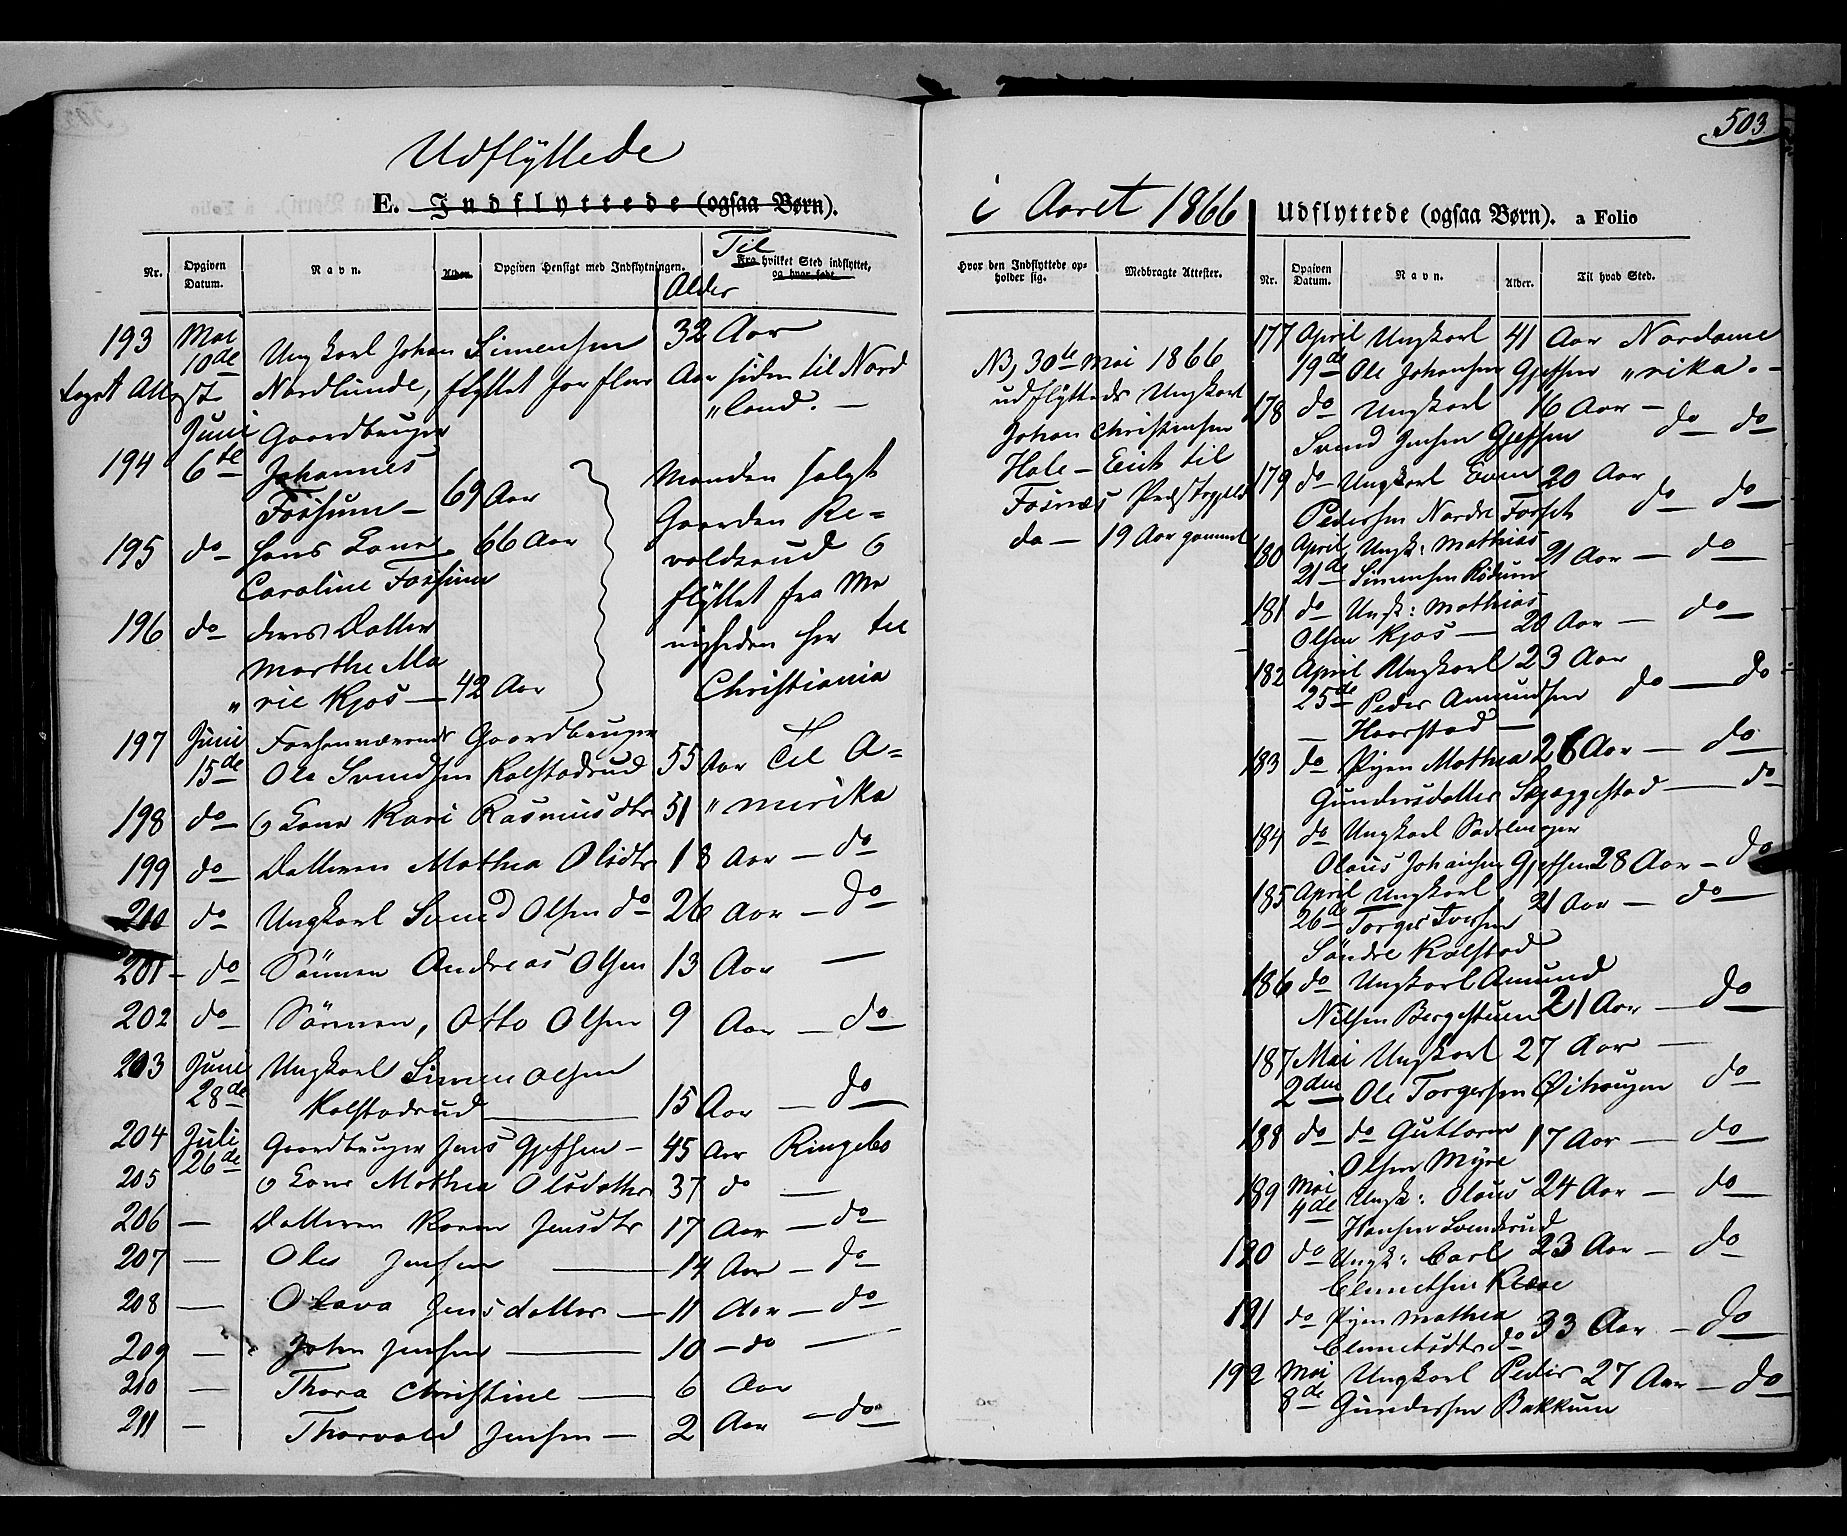 Udflyttede
E. Indflyttede (ogsaa Børn).
Nr.
Opgiven Datum.
Navn.
Alder.
Opgiven Hensigt med Indflytningen.
Alder
Til
Fra hvilket Sted indflyttet, og hvor født.
193 Mai 10de Ungkarl Johan Simensen 32 Aar
taget Attest Nordlunde, flyttet for flere Aar siden til Nord
"land. —
Juni Gaardbruger
194 6te Johannes Manden solgt
Fossum — 69 Aar Gaarden Re=
195 do hans Kone 66 Aar voldsrud &
Caroline Fossum flyttet fra Me
196 do deres Datter nigheden her til
Marthe Ma
" rie Kjos — 42 Aar Christiania
197 Juni Forhenværende Gaardbruger
15de Ole Svendsen Kalstadrud 55 Aar Til A=
198 do & Kone Kari Rasmusdtr 51 " merika
199 do Datteren Mathea Olsdtr 18 Aar — do
200 do Ungkarl Svend Olsen do 26 Aar — do
201 — do Sönnen Andreas Olsen 13 Aar —
202 do Sönnen, Otto Olsen 9 Aar — do
203 Juni Ungkarl Simen Olsen
28de Kalstadrud — 15 Aar — do
204 Juli 26de Gaardbruger Jens Gjefsen — 45 Aar Ringebo
205 & Kone Mathea Olsdatter 37 do —
206 — Datteren Karen Jensdtr 17 Aar — do
207 — Ole Jensen — 14 Aar — do
208 — Olava Jensdatter — 11 Aar — do
209 — John Jensen — 10 — do —
210 — Thora Christine — 6 Aar
211 — Thorvald Jensen — 2 Aar — do
503
i Aaret 1866
Hvor den Indflyttede opholder sig.
Medbragte Attester.
NB, 30te Mai 1866
udflyttede Ungkarl
Johan Christensen
Hole — Eie til
Fosnæs Præstegjeld
do — 19 Aar gammel
Udflyttede (ogsaa Børn). a Folio
Nr.
Opgiven Datum.
Navn.
Alder.
Til hvad Sted.
177 April Ungkarl 41 Aar Nordame
19de Ole Johansen Gjefsen " rika. —
178 do Ungkarl 16 Aar — do do
Svend Jensen Gjefsen
179 do Ungkarl Even 20 Aar
Pedersen Nordre Forset do do
180 April Ungk: Mathias 21 Aar — do
21de Simensen Rödum
181 do Ungk: Mathias
Olsen Kjos — 20 Aar — do
182 April Ungkarl 23 Aar
25de Peder Amundsen do — do
— Haarstad —
183 do Pigen Mathea 26 Aar — do
Gundersdatter Skjæggestad — do
184 do Ungkarl Sadelmager
Olaus Johansen Gjefsen 28 Aar — do
185 April Ungkarl 21 Aar — do
26de Torger Iversen
Söndre Kalstad
186 do Ungkarl Amund
Nilsen Bergestuen 21 Aar — do
187 Mai Ungkarl 27 Aar —
2den Ole Torgersen Öihaugen do
188 do do Guttorm 17 Aar — do
Olsen Myre
189 Mai Ungk: Olaus 24 Aar — do
4de Hansen Svendsrud
190 do Ungk: Carl 23 Aar — do
Clemetsen
191 do Pigen Mathea
Clemetsdtr do 33 Aar — do
192 Mai Ungkarl Peder 27 Aar — do
8de Gundersen Bakkum